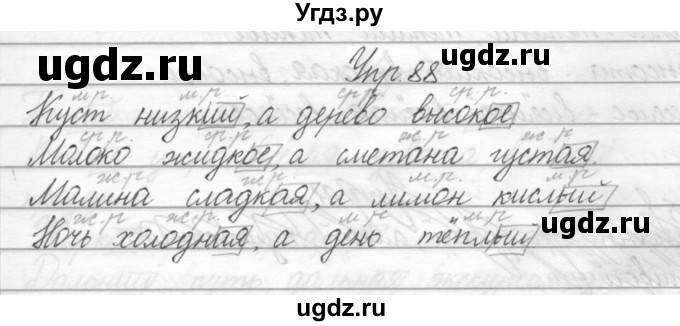 Угдз.ру
ugdz.ru ugdz.ru
Упр. 88
м.р. м.р. ср.р. ср.р.
Куст низкий, а дерево высокое
ср.р. ср.р. ж.р. ж.р.
Молоко жидкое, а сметана густая.
ж.р. ж.р. м.р. м.р.
Малина сладкая, а лимон кислый
ж.р. ж.р. м.р. м.р.
Ночь холодная, а день тёплый
ugdz.ru ugdz.ru
ugdz.ru